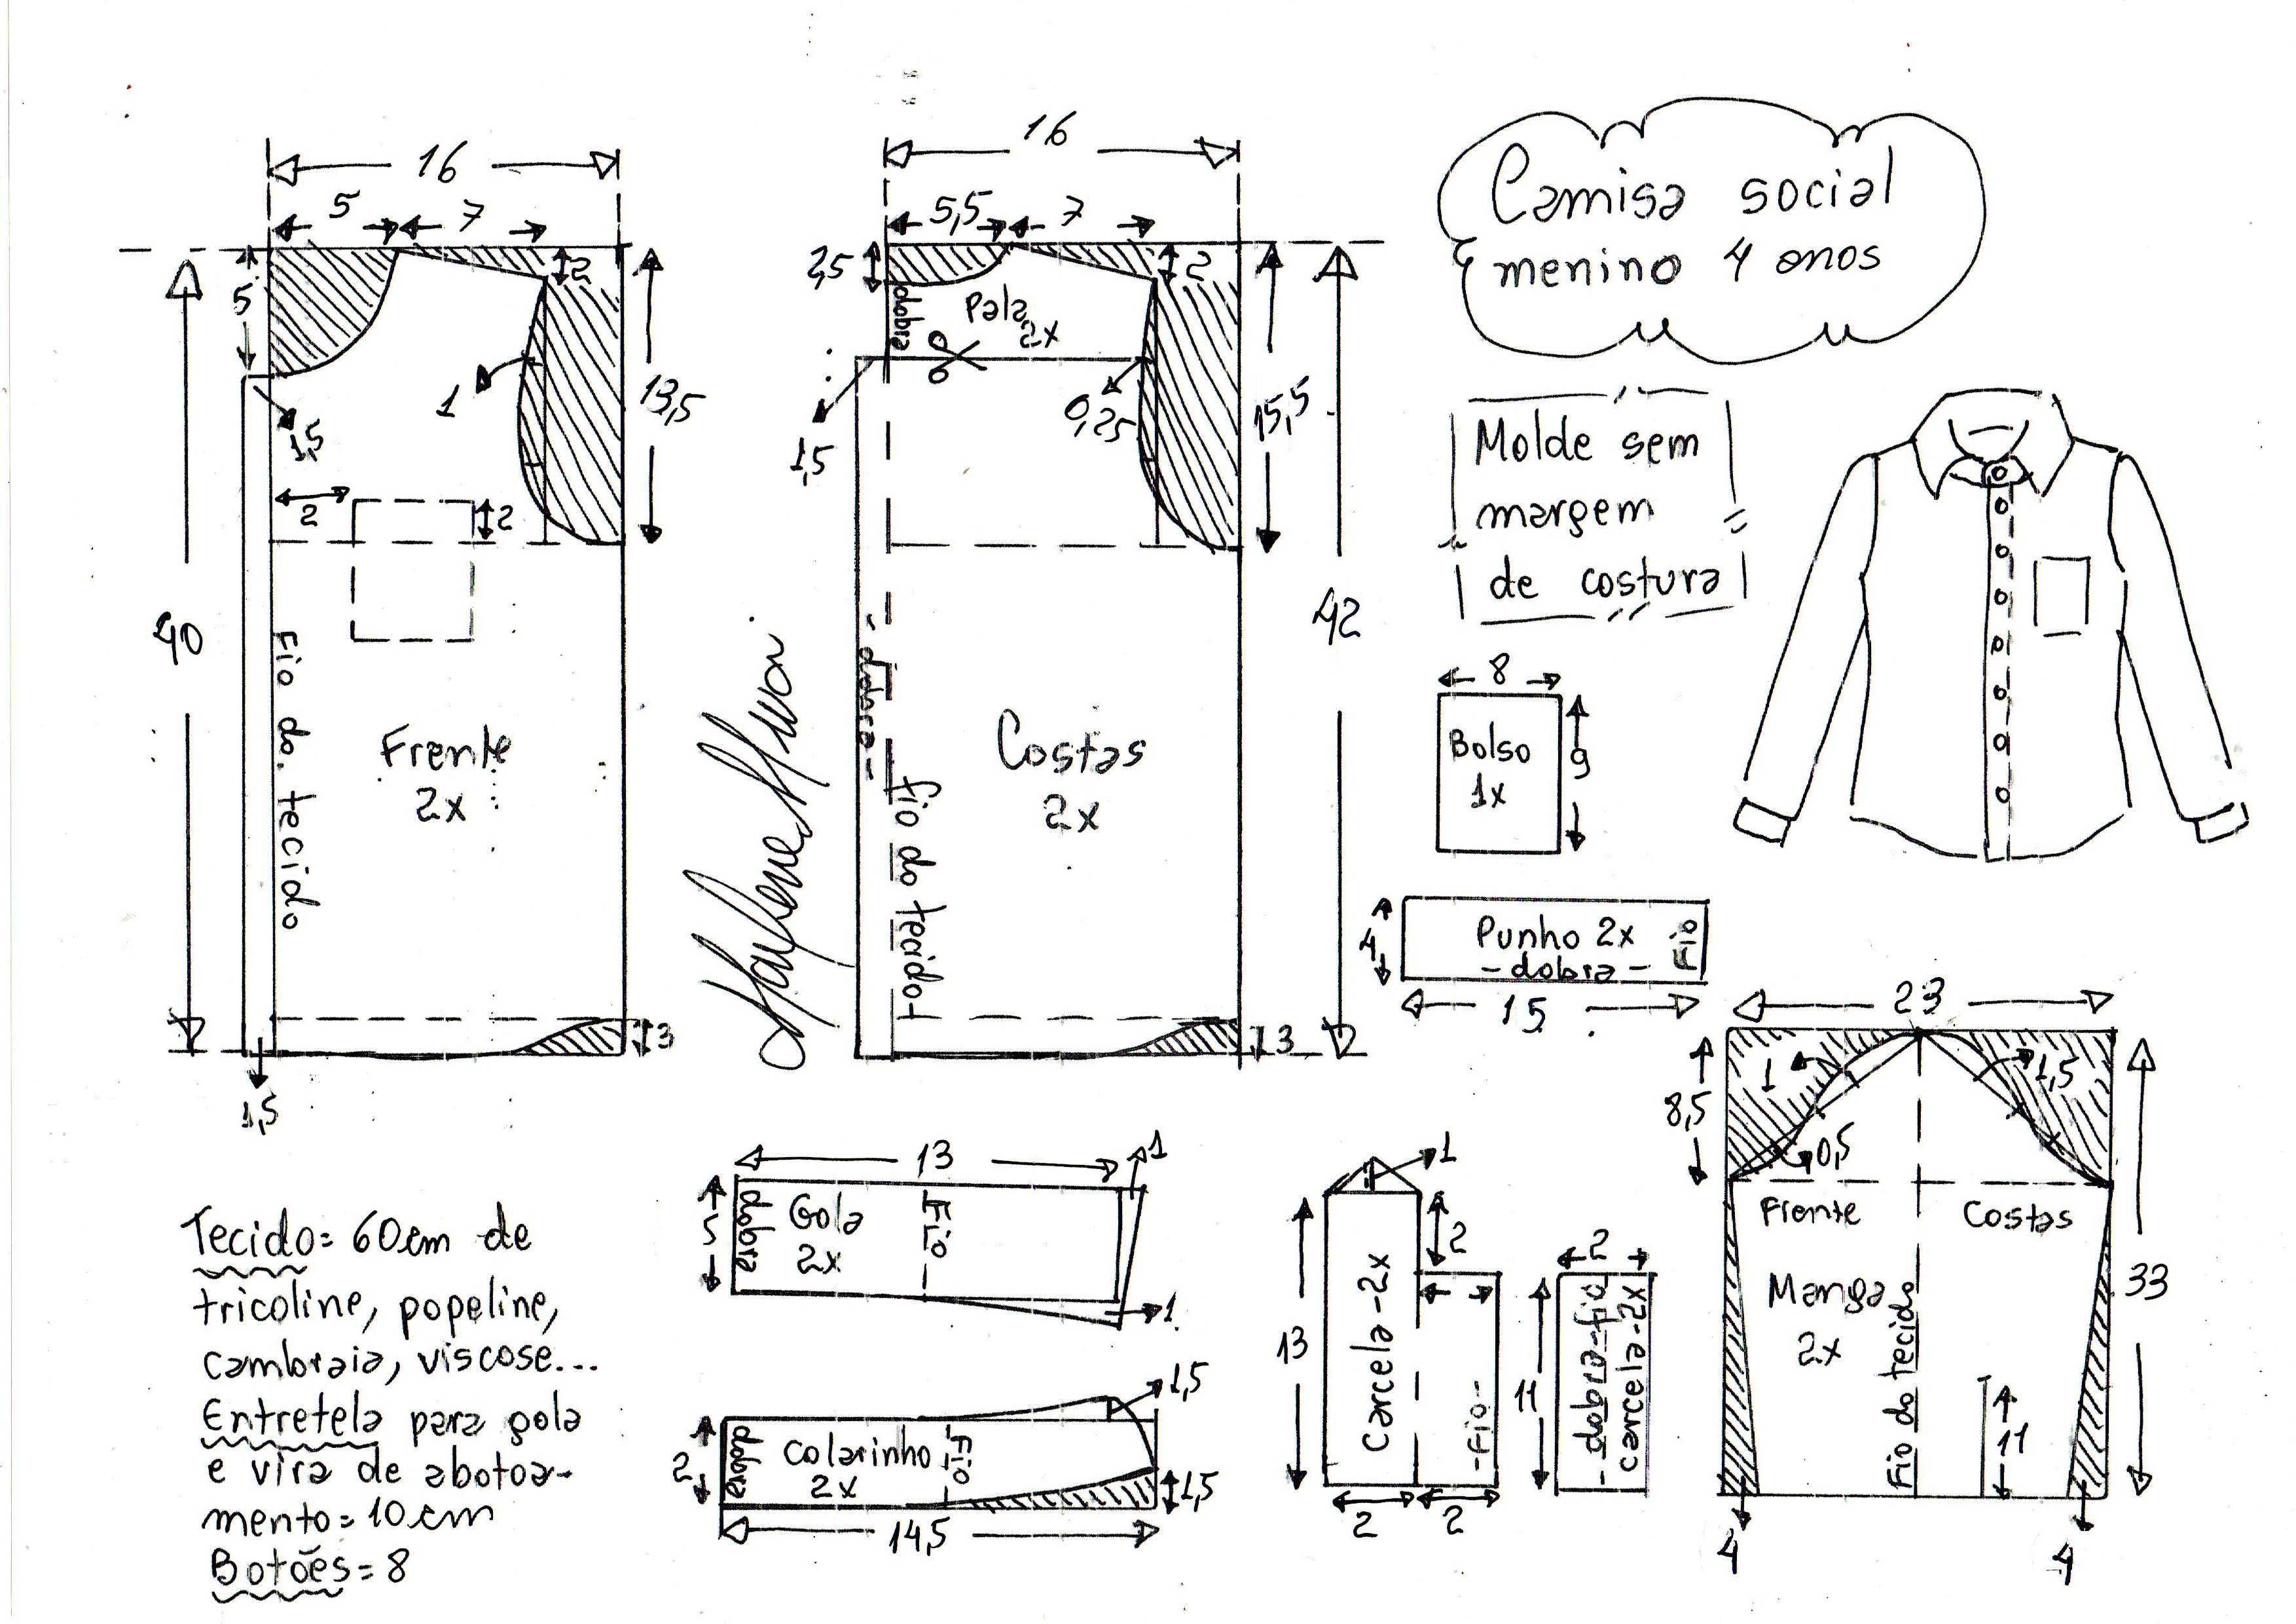 16
5
7
5
2
13,5
1
1,5
2
2
40
Fio do tecido
Frente
2x
3
1,5
16
5,5
7
2,5
2
dobra
Pala
2x
1,5
0,25
15,5
42
- dobra -
fio do tecido
Costas
2x
3
Camisa social
menino 4 anos
Molde sem
margem
de costura
8
Bolso
1x
9
4
Punho 2x
- dobra -
Fio
15
23
1
1,5
8,5
0,5
Frente
Costas
Manga
2x
Fio do tecido
33
11
4
4
13
1
5
dobra
Gola
2x
Fio
1
1,5
2
dobra
Colarinho
2x
Fio
1,5
14,5
1
2
13
Carcela-2x
-Fio-
2
2
2
11
-dobra-fio
carcela-2x
Tecido= 60cm de
tricoline, popeline,
cambraia, viscose...
Entretela para gola
e vira de abotoa-
mento= 10cm
Botões= 8